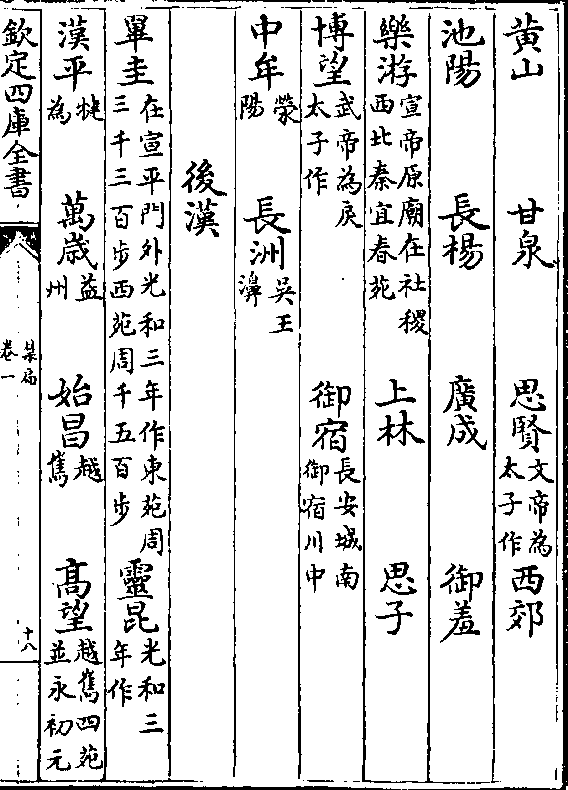 黄山 甘泉 思賢文帝為太子作 西郊
池陽 長楊 廣成 御羞
樂游宣帝原廟在社稷西北秦宜春苑 上林 思子
博望武帝為戾太子作 御宿長安城南御宿川中
中牟滎陽 長洲吳王濞
後漢
單圭在宣平門外光和三年作東苑周三千三百步西苑周千五百步 靈昆光和三年作
漢平犍為 萬歳益州 始昌越雋 髙望越雋四苑並永初元
欽定四庫全書
卷一
十八